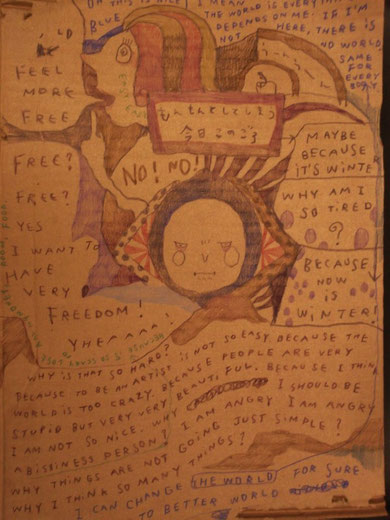 OH THIS IS NICE
BLUE
I MEAN
THE WORLD IS EVERYTHING
DEPENDS ON ME. IF I'M
NOT HERE, THERE IS
NO WORLD
SAME
FOR
EVERY
BODY
FEEL
MORE
FREE
FREE?
FREE?
YES
I WANT TO
HAVE
VERY
FREEDOM!
YHEAAAA
もんもんとしてしまう
今日このごろ
NO! NO!
MAYBE
BECAUSE
IT'S WINTER
WHY AM I
SO TIRED
?
BECAUSE
NOW
IS
WINTER!
WHY IS THAT SO HARD?
BECAUSE TO BE AN ARTIST IS NOT SO EASY BECAUSE THE
WORLD IS TOO CRAZY. BECAUSE PEOPLE ARE VERY
STUPID BUT VERY VERY BEAUTIFUL. BECAUSE I THINK
I AM NOT SO NICE. WHY I SHOULD BE
A BISSINESS PERSON? I AM ANGRY I AM ANGRY
WHY THINGS ARE NOT GOING JUST SIMPLE?
WHY I THINK SO MANY THINGS?
I CAN CHANGE THE WORLD FOR SURE
TO BETTER WORLD